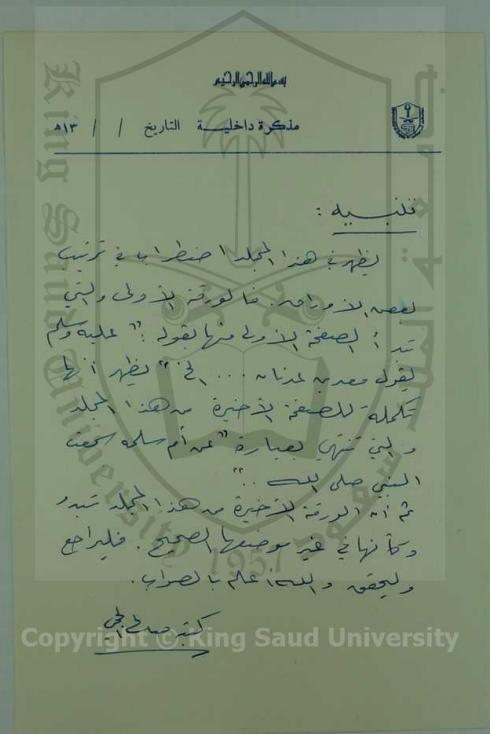 بسم الله الرحمن الرحيم
مذكرة داخليـــة التاريخ / / ١٣هـ
تنبيه :
يظهر في هذا المجلد اضطراب في ترتيب
بعض الأوراق. فالورقة الأولى والتي
تبدأ الصفحة الأولى منها بقوله : " عليه وسلم
يقول معد بن عدنان ... الخ " يظهر أنها
تكملة للصفحة الأخيرة من هذا المجلد
والتي تنتهي بعبارة " عن أم سلمة سمعت
النبي صلى الله .. "
ثم أن الورقة الأخيرة من هذا المجلد تبدو
وكأنها في غير موضعها الصحيح . فليراجع
وليحقق والله أعلم بالصواب .
كتبه صالح الحجي
King Saud University
جامعة الملك سعود
1957
Copyright © King Saud University